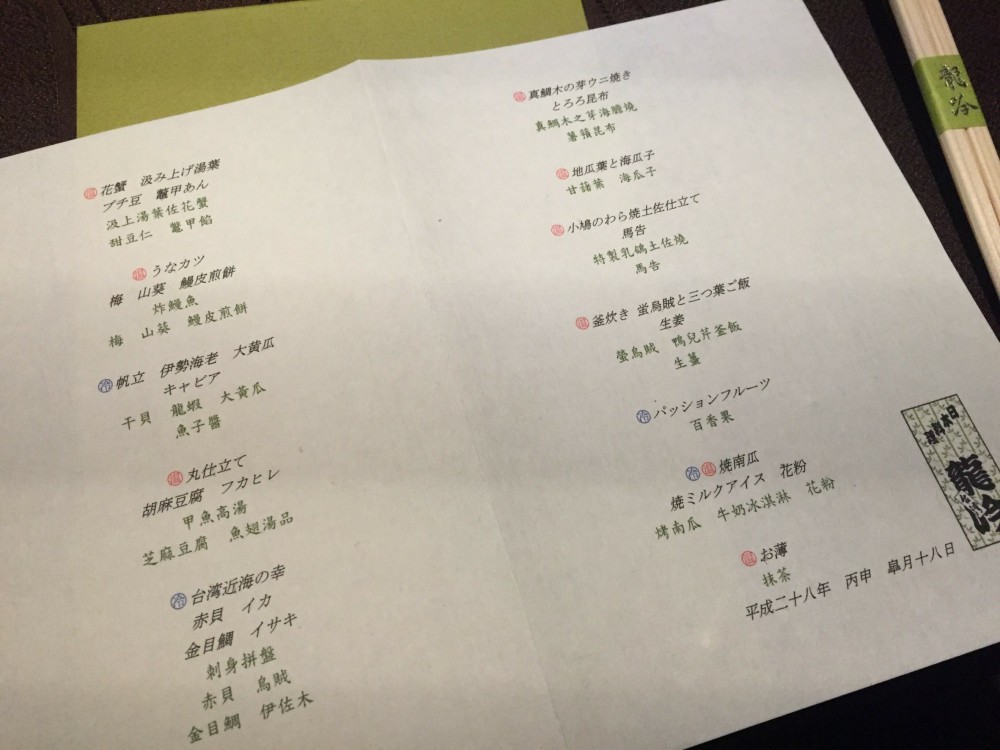 温 花蟹　汲み上げ湯葉
プチ豆　鼈甲あん
汲上湯葉佐花蟹
甜豆仁　鼈甲餡
温 うなカツ
梅　山葵　鰻皮煎餅
炸鰻魚
梅　山葵　鰻皮煎餅
冷 帆立　伊勢海老　大黄瓜
キャビア
干貝　龍蝦　大黃瓜
魚子醬
温 丸仕立て
胡麻豆腐　フカヒレ
甲魚高湯
芝麻豆腐　魚翅湯品
冷 台湾近海の幸
赤貝　イカ
金目鯛　イサキ
刺身拼盤
赤貝　烏賊
金目鯛　伊佐木
温 真鯛木の芽ウニ焼き
とろろ昆布
真鯛木之芽海膽燒
薯蕷昆布
温 地瓜葉と海瓜子
甘藷葉　海瓜子
温 小鳩のわら焼土佐仕立て
馬告
特製乳鴿土佐燒
馬告
温 釜炊き 蛍烏賊と三つ葉ご飯
生姜
螢烏賊　鴨兒芹釜飯
生薑
冷 パッションフルーツ
百香果
冷 温 焼南瓜
焼ミルクアイス　花粉
烤南瓜　牛奶冰淇淋　花粉
温 お薄
抹茶
平成二十八年　丙申　皐月十八日
日本料理
龍吟
龍吟